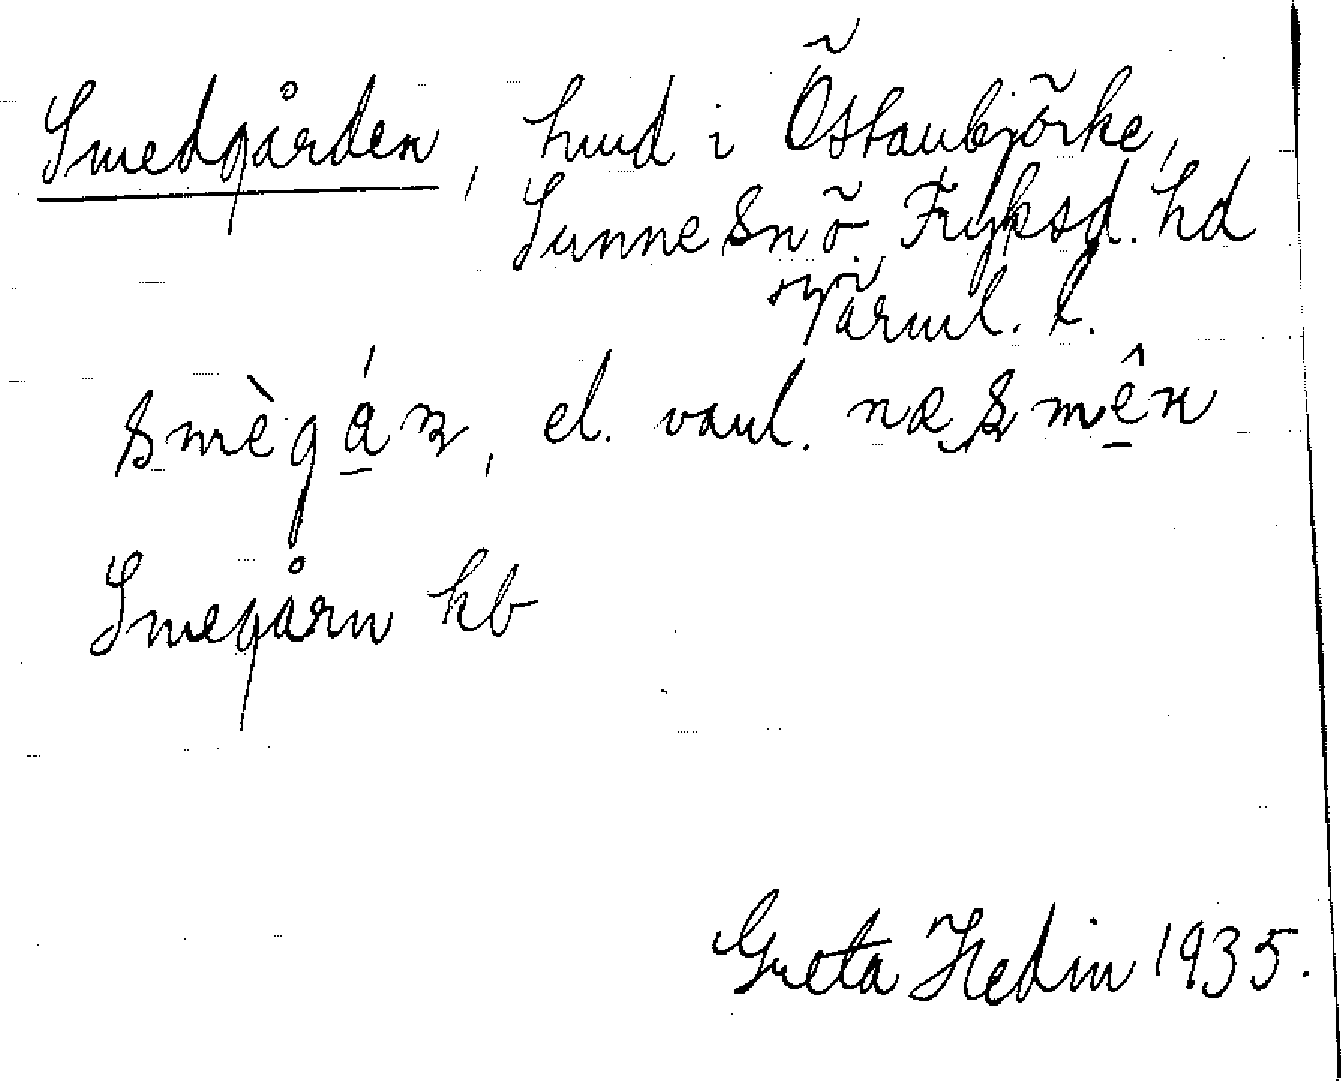 Smedgården, hmd i Östanbjörke,
Sunne sn ö. Fryksd. hd
Värml. l.
smègán, el. vanl. næ smên
Smegårn kb
Greta Hedin 1935.